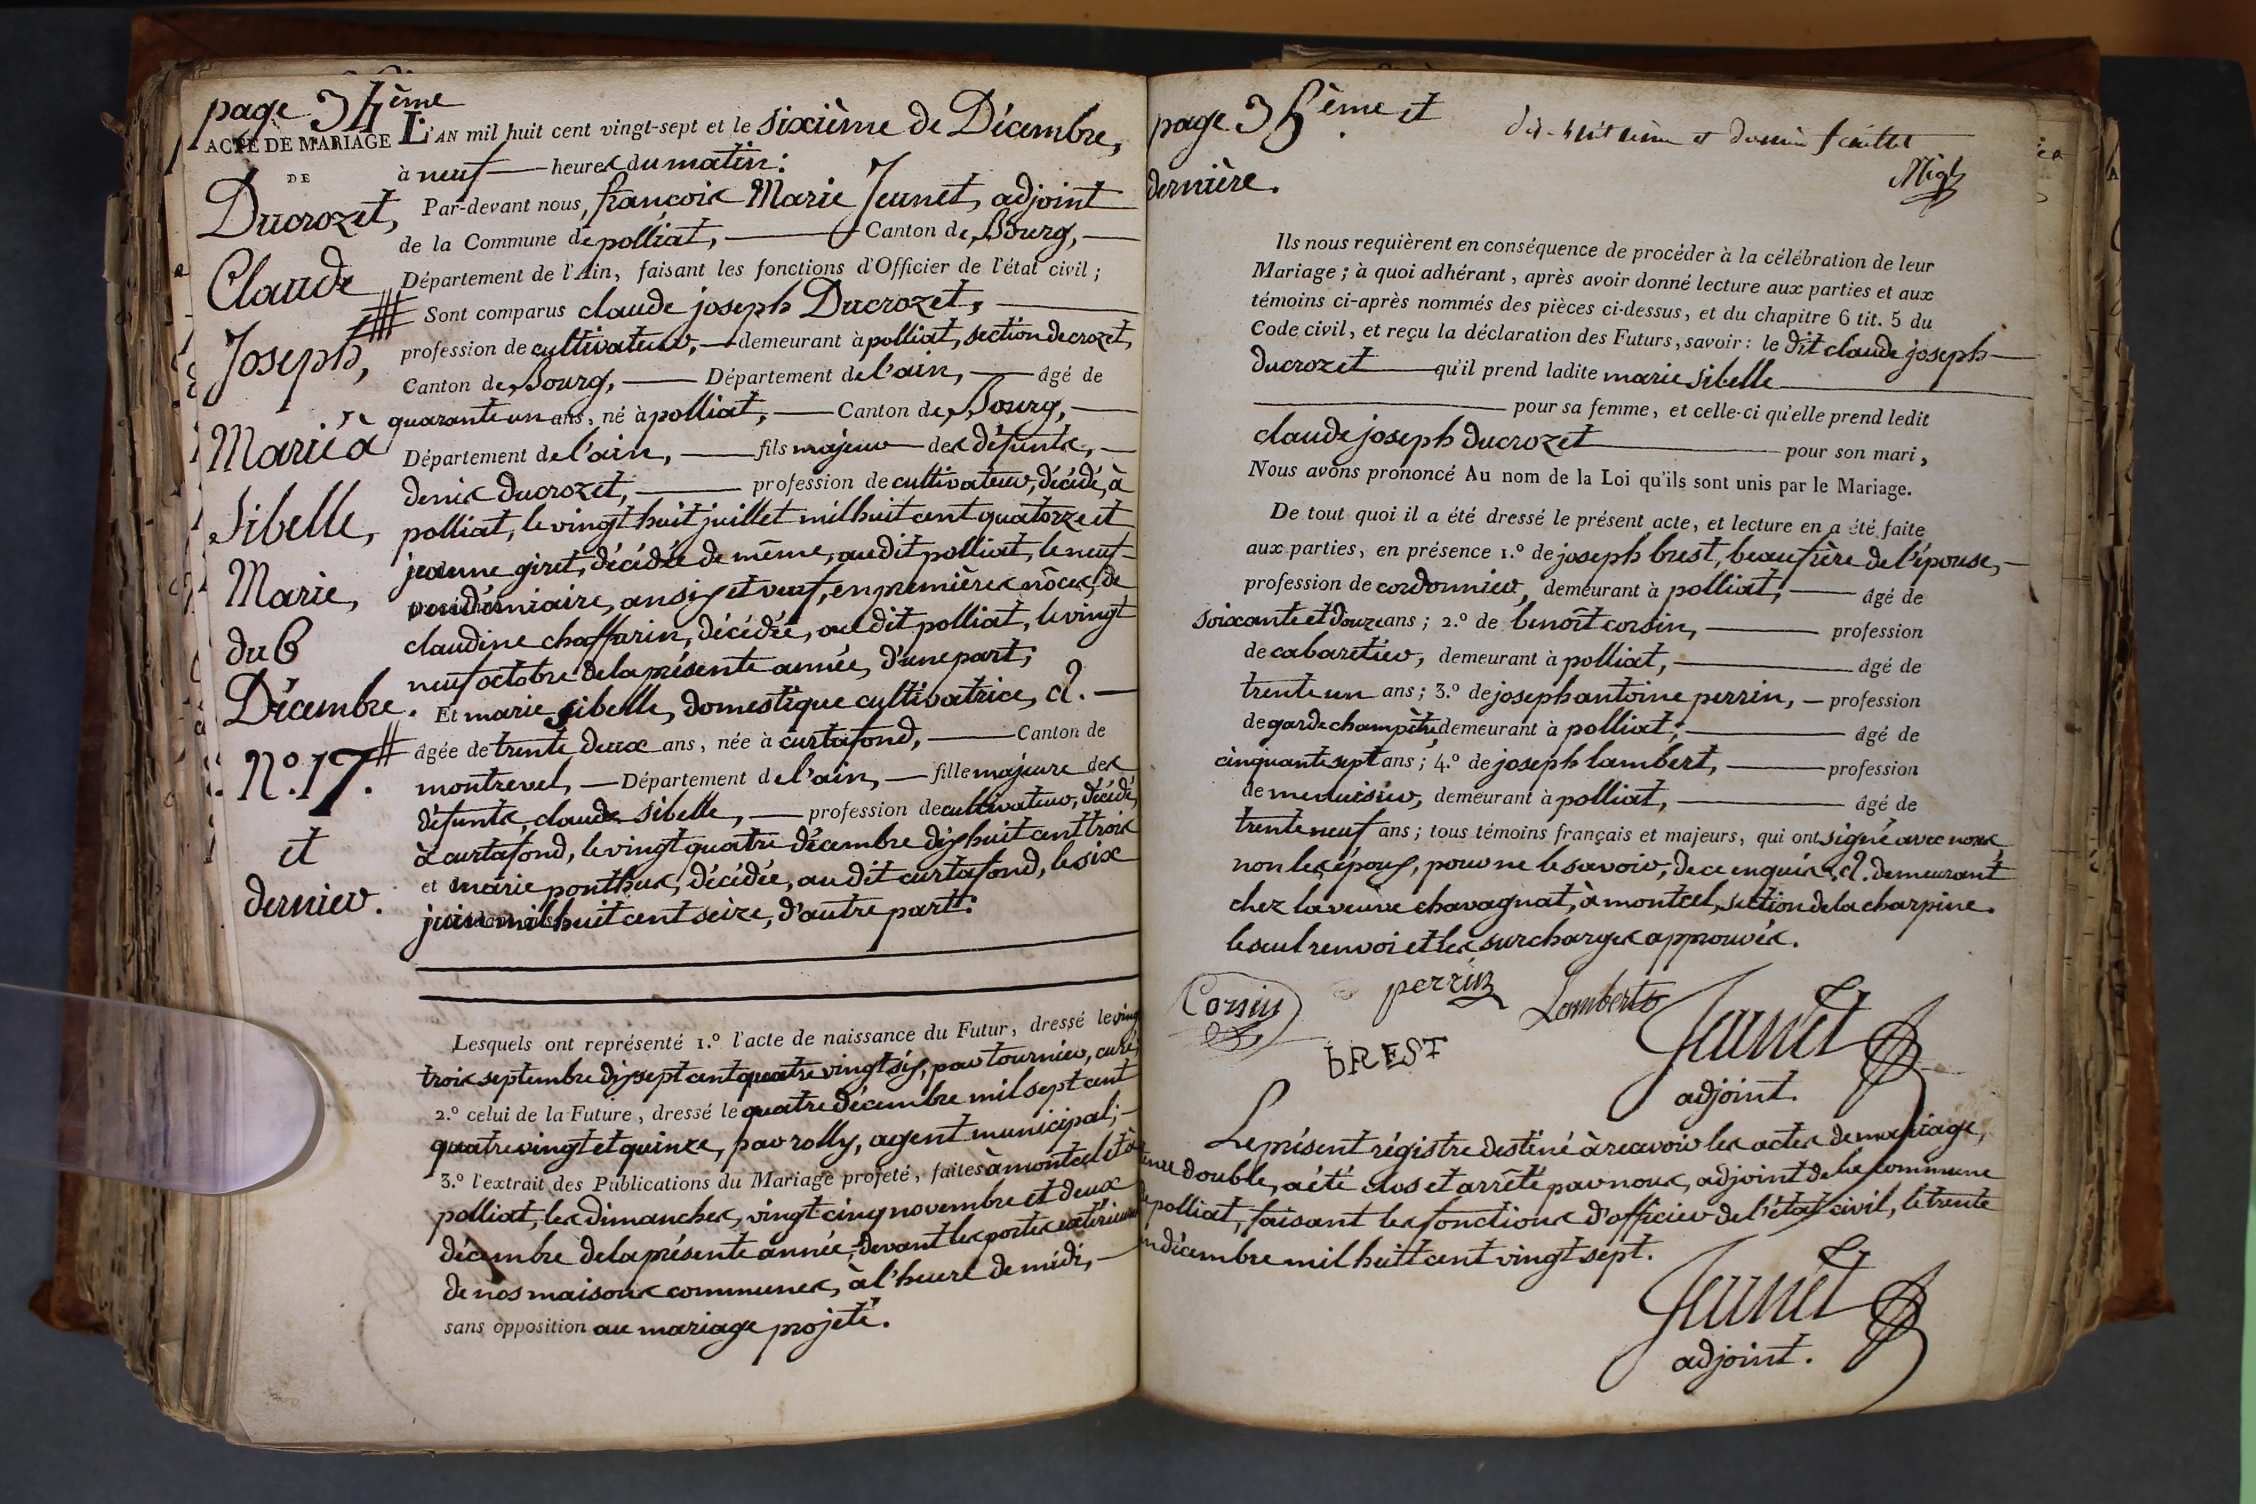 page 34ème
ACTE DE MARIAGE
DE
Ducrozet,
Claude
Joseph,
Marié à
Sibelle,
Marie,
du 6
Décembre.
N.o 17.
et
dernier.
L'AN mil huit cent vingt-sept et le sixième de Décembre,
à neuf heures du matin:
Par-devant nous, françois Marie Jeunet, adjoint
de la Commune de polliat, Canton de Bourg,
Département de l'Ain, faisant les fonctions d'Officier de l'état civil;
Sont comparus claude joseph Ducrozet,
profession de cultivateur, demeurant à polliat, section de crozet,
Canton de Bourg, Département de l'ain, âgé de
quarante un ans, né à polliat, Canton de Bourg,
Département de l'ain, fils majeur des défunts,
denis ducrozet, profession de cultivateur, décédé, à
polliat, le vingt huit juillet mil huit cent quatorze et
jeanne giret, décédée de même, audit polliat, le neuf
vendémiaire, an six et veuf, en premières nôces, de
claudine chaffarin, décédée, audit polliat, le vingt
neuf octobre de la présente année, d'une part;
Et marie sibelle, domestique cultivatrice, &.
âgée de trente deux ans, née à curtafond, Canton de
montrevel, Département de l'ain, fille majeure des
défunts, claude sibelle, profession de cultivateur, décédé,
à curtafond, le vingt quatre décembre dix huit cent trois
et marie ponthus, décédée, audit curtafond, le six
juin mil huit cent seize, d'autre part:
Lesquels ont représenté 1.o l'acte de naissance du Futur, dressé le vingt
trois septembre dix sept cent quatre vingt six, par tournier, curé,
2.o celui de la Future, dressé le quatre décembre mil sept cent
quatre vingt et quinze, par rolly, agent municipal;
3.o l'extrait des Publications du Mariage projeté, faites à montcel et à
polliat, les dimanches, vingt cinq novembre et deux
décembre de la présente année, devant les portes extérieures
de nos maisons communes, à l'heure de midi,
sans opposition au mariage projeté.
page 35ème et
dernière.
dix-huitième et dernier feuillet
Ils nous requièrent en conséquence de procéder à la célébration de leur
Mariage; à quoi adhérant, après avoir donné lecture aux parties et aux
témoins ci-après nommés des pièces ci-dessus, et du chapitre 6 tit. 5 du
Code civil, et reçu la déclaration des Futurs, savoir: le dit claude joseph
ducrozet qu'il prend ladite marie sibelle
pour sa femme, et celle-ci qu'elle prend ledit
claude joseph ducrozet pour son mari,
Nous avons prononcé Au nom de la Loi qu'ils sont unis par le Mariage.
De tout quoi il a été dressé le présent acte, et lecture en a été faite
aux parties, en présence 1.o de joseph brest, beaufrère de l'épouse,
profession de cordonnier, demeurant à polliat, âgé de
soixante et douze ans; 2.o de benoît corsin, profession
de cabaretier, demeurant à polliat, âgé de
trente un ans; 3.o de joseph antoine perrin, profession
de garde champêtre, demeurant à polliat, âgé de
cinquante sept ans; 4.o de joseph lambert, profession
de menuisier, demeurant à polliat, âgé de
trente neuf ans; tous témoins français et majeurs, qui ont signé avec nous
non les époux, pour ne le savoir, de ce enquis. &. demeurant
chez la veuve chavagnat, à montcel, section de la charpine.
le seul renvoi et les surcharges approuvés.
Corsin
perrin
Lambert
Jeunet
bREST
adjoint.
Le présent régistre destiné à recevoir les actes de mariage,
tenu double, a été clos et arrêté par nous, adjoint de la commune
de polliat, faisant les fonctions d'officier de l'état civil, le trente
un décembre mil huit cent vingt sept.
Jeunet
adjoint.